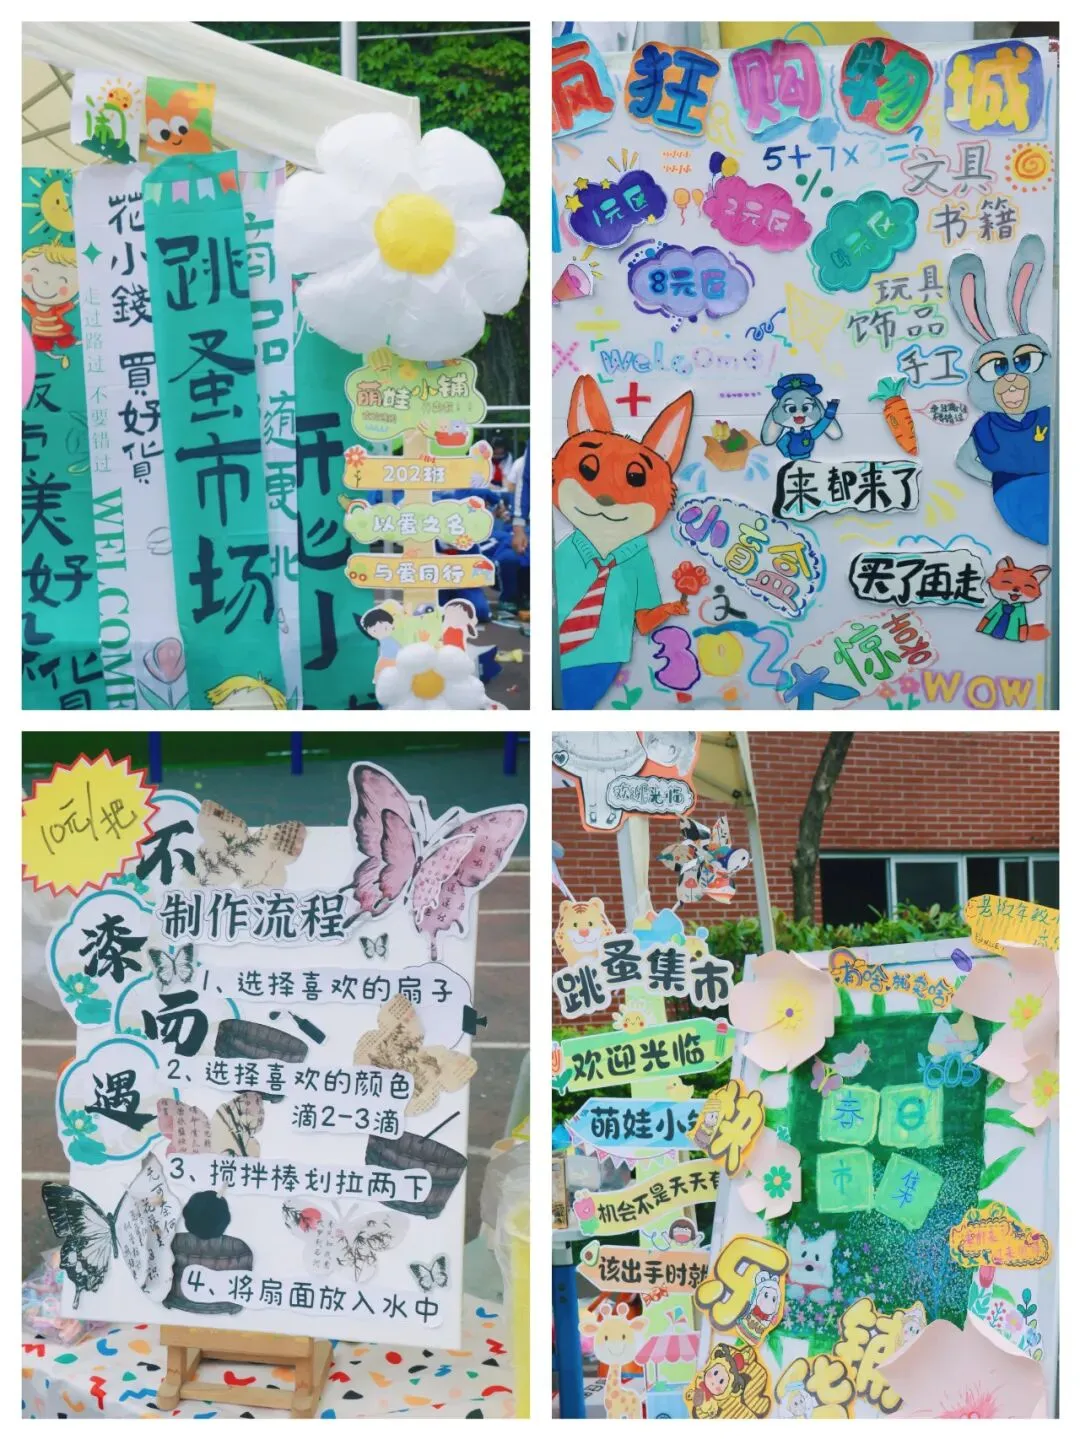 闹
花小錢 買好貨
走过路过 不要错过
WELCOME
跳蚤市场
商品随便挑
美好
萌娃小铺
202班
以爱之名
与爱同行
疯狂购物城
5+7×3=
%
1元区
2元区
8元区
文具
书籍
玩具
饰品
手工
Welcome!
来都来了
小盲盒
买了再走
302
大惊喜
WOW!
10元/把
不漆而遇
制作流程
1、选择喜欢的扇子
2、选择喜欢的颜色
滴2-3滴
3、搅拌棒划拉两下
4、将扇面放入水中
欢迎光临
跳蚤集市
欢迎光临
萌娃小
机会不是天天有
该出手时就
有啥就卖啥
603
春日
市集
快乐